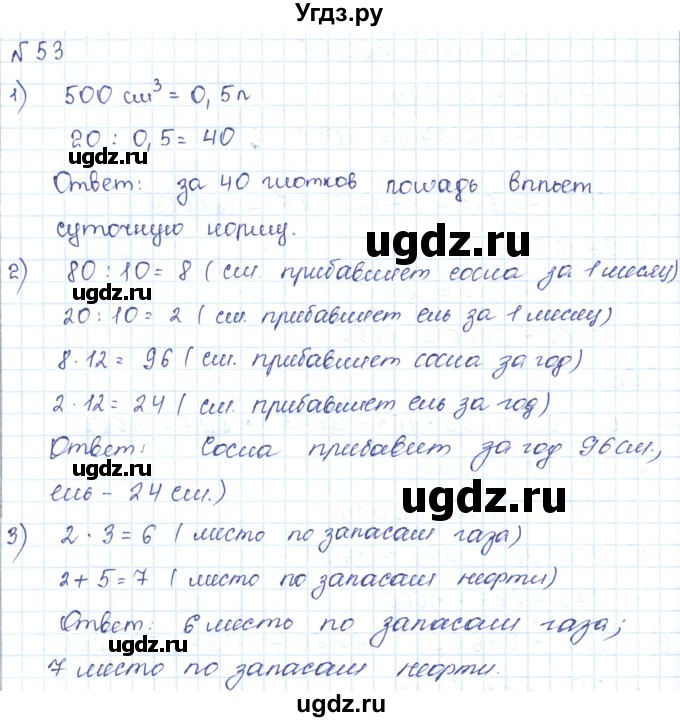 Угдз.ру
№ 53
1) 500 см³ = 0,5л
20 : 0,5 = 40
ugdz.ru
Ответ: за 40 глотков лошадь выпьет
суточную норму.
ugdz.ru
2) 80 : 10 = 8 ( см. прибавляет сосна за 1 месяц)
ugdz.ru
20 : 10 = 2 ( см. прибавляет ель за 1 месяц)
8 · 12 = 96 ( см. прибавляет сосна за год)
2 · 12 = 24 ( см. прибавляет ель за год)
Ответ: Сосна прибавит за год 96 см.,
ugdz.ru
ель - 24 см.)
ugdz.ru
3) 2 · 3 = 6 ( место по запасам газа)
2 + 5 = 7 ( место по запасам нефти)
Ответ: 6 место по запасам газа;
ugdz.ru
7 место по запасам нефти.
ugdz.ru